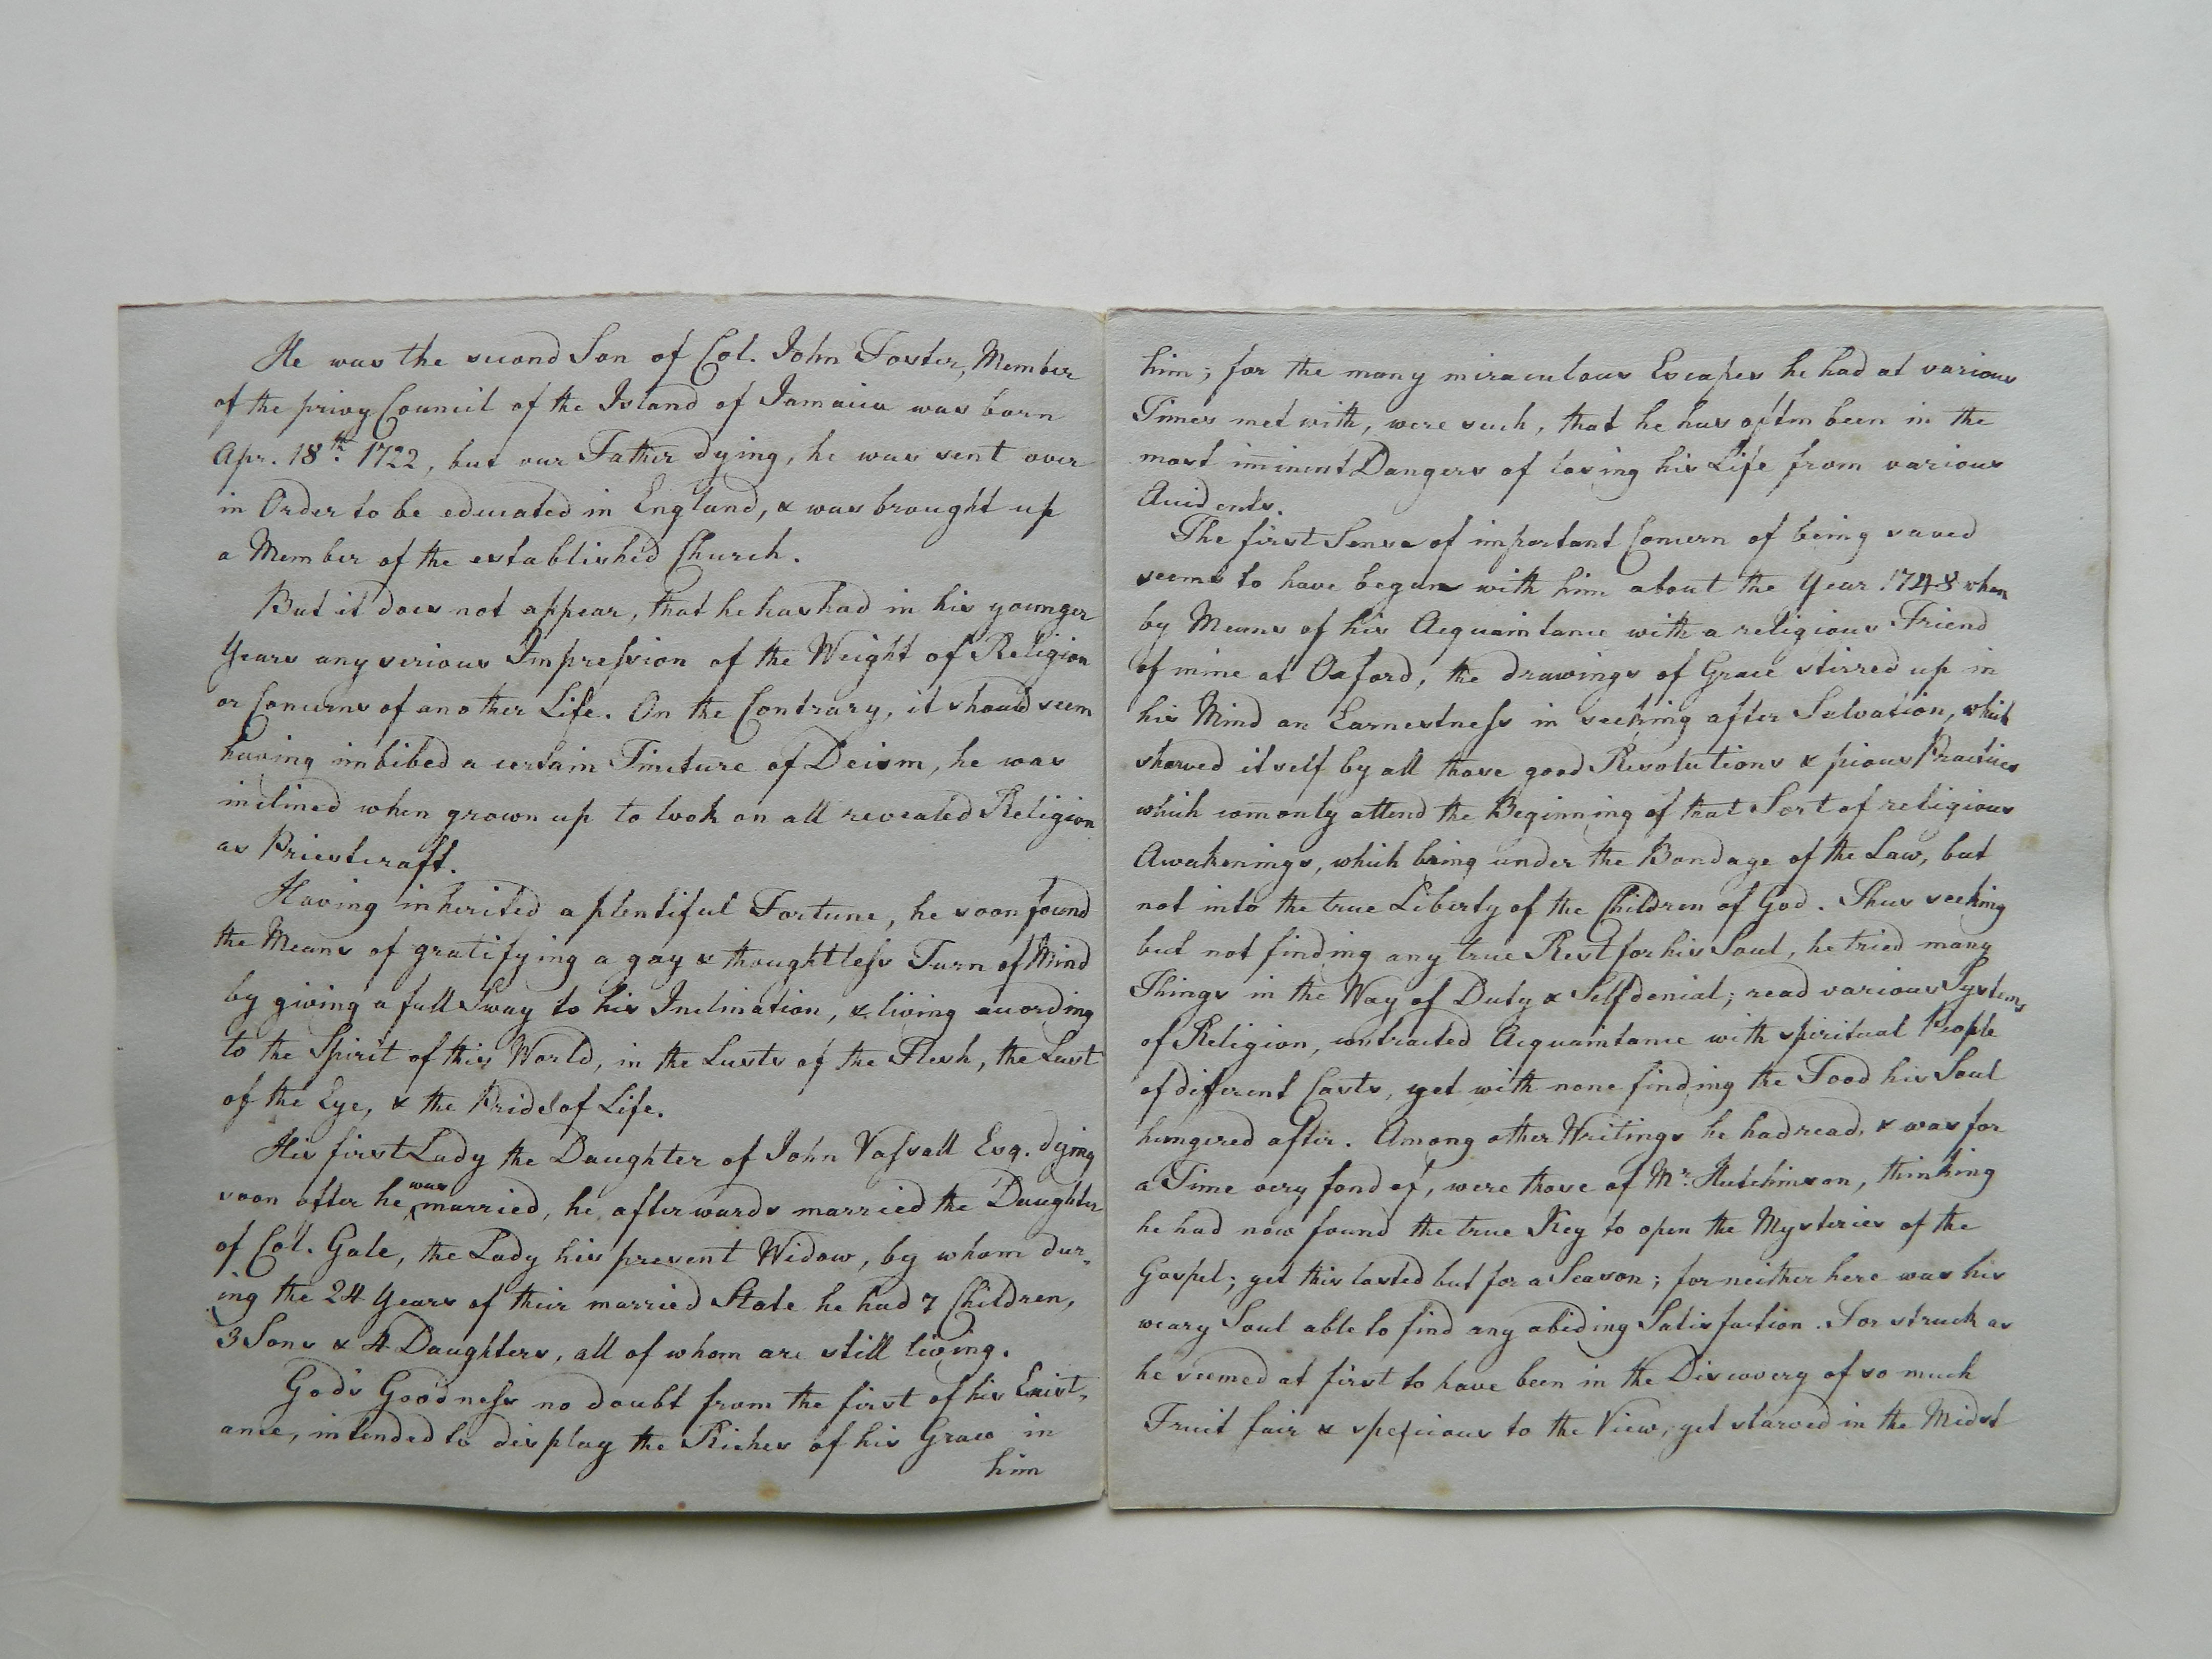 He was the second Son of Col. John Foster, Member
of the privy Council of the Island of Jamaica was born
Apr. 18th. 1722, but our Father dying, he was sent over
in Order to be educated in England, & was brought up
a Member of the established Church.
But it does not appear, that he has had in his younger
Years any serious Impreſsion of the Weight of Religion
or Concerns of another Life. On the Contrary, it should seem
having imbibed a certain Tincture of Deism, he was
inclined when grown up to look on all revealed Religion
as Priestcraft.
Having inherited a plentiful Fortune, he soon found
the Means of gratifying a gay & thoughtleſs Turn of Mind
by giving a full Sway to his Inclination, & living according
to the Spirit of this World, in the Lusts of the Flesh, the Lust
of the Eye, & the Pride of Life.
His first Lady the Daughter of John Vaſsall Esq. dying
soon after he was married, he afterwards married the Daughter
of Col. Gale, the Lady his present Widow, by whom dur-
ing the 24 Years of their married State he had 7 Children,
3 Sons & 4 Daughters, all of whom are still living.
God's Goodneſs no doubt from the first of his Exist-
ance, intended to display the Riches of his Grace in
him
him; for the many miraculous Escapes he had at various
Times met with, were such, that he has often been in the
most im̄inent Dangers of losing his Life from various
Accidents.
The first Sense of important Concern of being saved
seems to have began with him about the Year 1748 when
by Means of his Acquaintance with a religious Friend
of mine at Oxford, the drawings of Grace stirred up in
his Mind an Earnestneſs in seeking after Salvation, which
shewed itself by all those good Resolutions & pious Practices
which com̄only attend the Beginning of that Sort of religious
Awakenings, which bring under the Bondage of the Law, but
not into the true Liberty of the Children of God. Thus seeking
but not finding any true Rest for his Soul, he tried many
Things in the Way of Duty & Selfdenial; read various Systems
of Religion, contracted Acquaintance with spiritual People
of different Casts, yet with none finding the Food his Soul
hungered after. Among other Writings he had read, & was for
a Time very fond of, were those of Mr. Hutchinson, thinking
he had now found the true Key to open the Mysteries of the
Gospel; yet this lasted but for a Season; for neither here was his
weary Soul able to find any abiding Satisfaction. For struck as
he seemed at first to have been in the Discovery of so much
Fruit fair & specious to the View, yet starved in the Midst